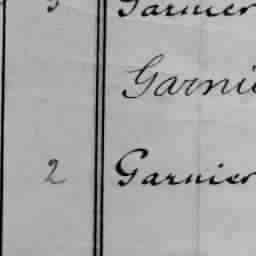 3 Garnier
Garnie
2 Garnier